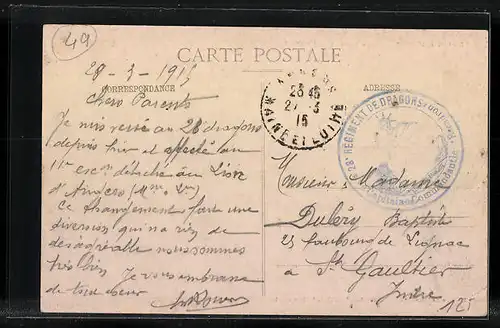 49
CARTE POSTALE
CORRESPONDANCE
ADRESSE
29-3-1915
Chers Parents
Je suis versé au 28e dragons
depuis hier et affecté au
11e escon détaché au Lion
d'Angers (Mne-Lre)
Ce changement fait une
diversion qui n'a rien de
désagréable nous sommes
très bien
Je vous embrasse
de tout coeur
27-3
15
MAINE ET LOIRE
28e REGIMENT DE DRAGONS
Capitaine Commandant
Monsieur Madame
Dubéry Baptiste
25 faubourg de
à St Gaultier
Indre
125